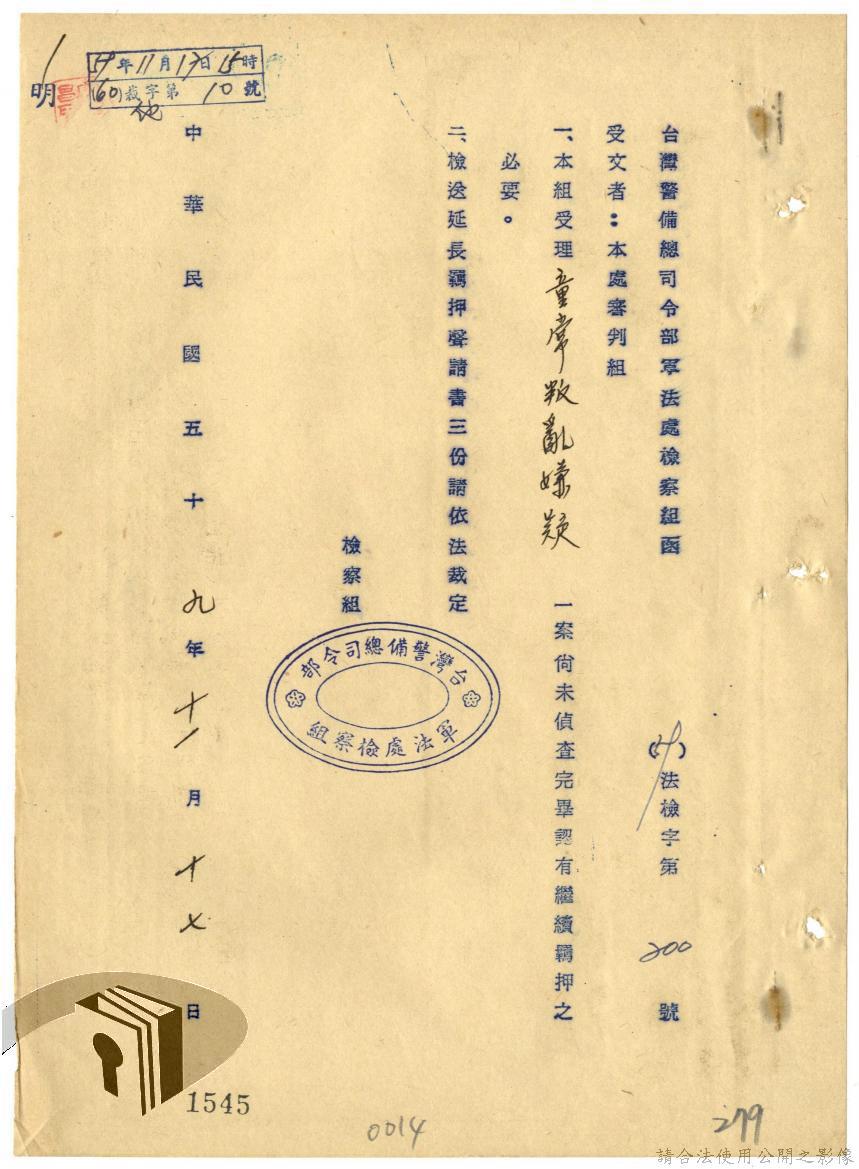 台灣警備總司令部軍法處檢察組函
(59)法檢字第200號
受文者：本處審判組
一、本組受理童常叛亂嫌疑一案尚未偵查完畢認有繼續羈押之
必要。
二、檢送延長羈押聲請書三份請依法裁定
檢察組
台灣警備總司令部
軍法處檢察組
中華民國五十九年十一月十七日
59年11月17日15時
(60)裁字第10號
他
明
1545
0014
279
請合法使用公開之影像